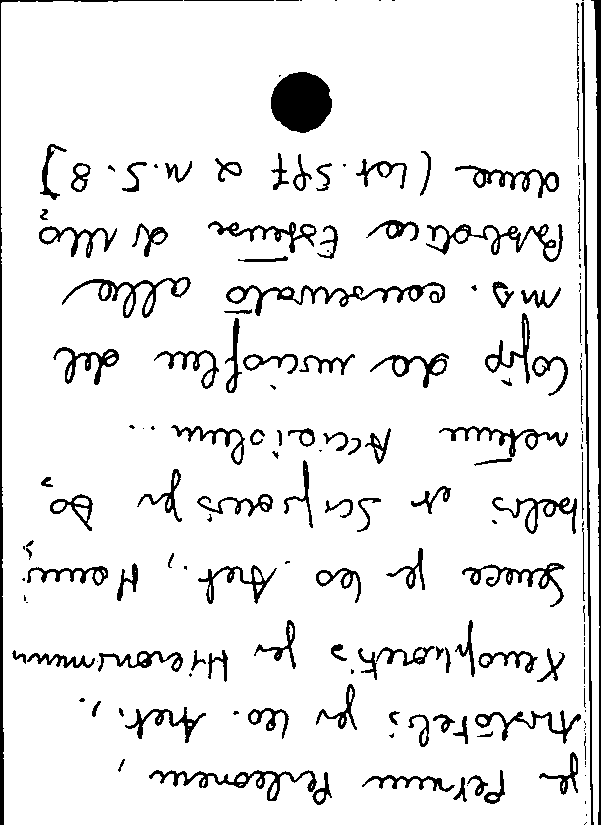 per Petrum Perleonem,
Aristotelis per Leo. Aret.,
Xenophontis per Hieronimum
Senece per Leo. Aret., Hanni,
balis et Scipionis per Do,
natum Acciaiolum...
Copia da microfilm del
ms. conservato alla
Biblioteca Estense di Mo,
dena (Lat. 597 α N.5.8]